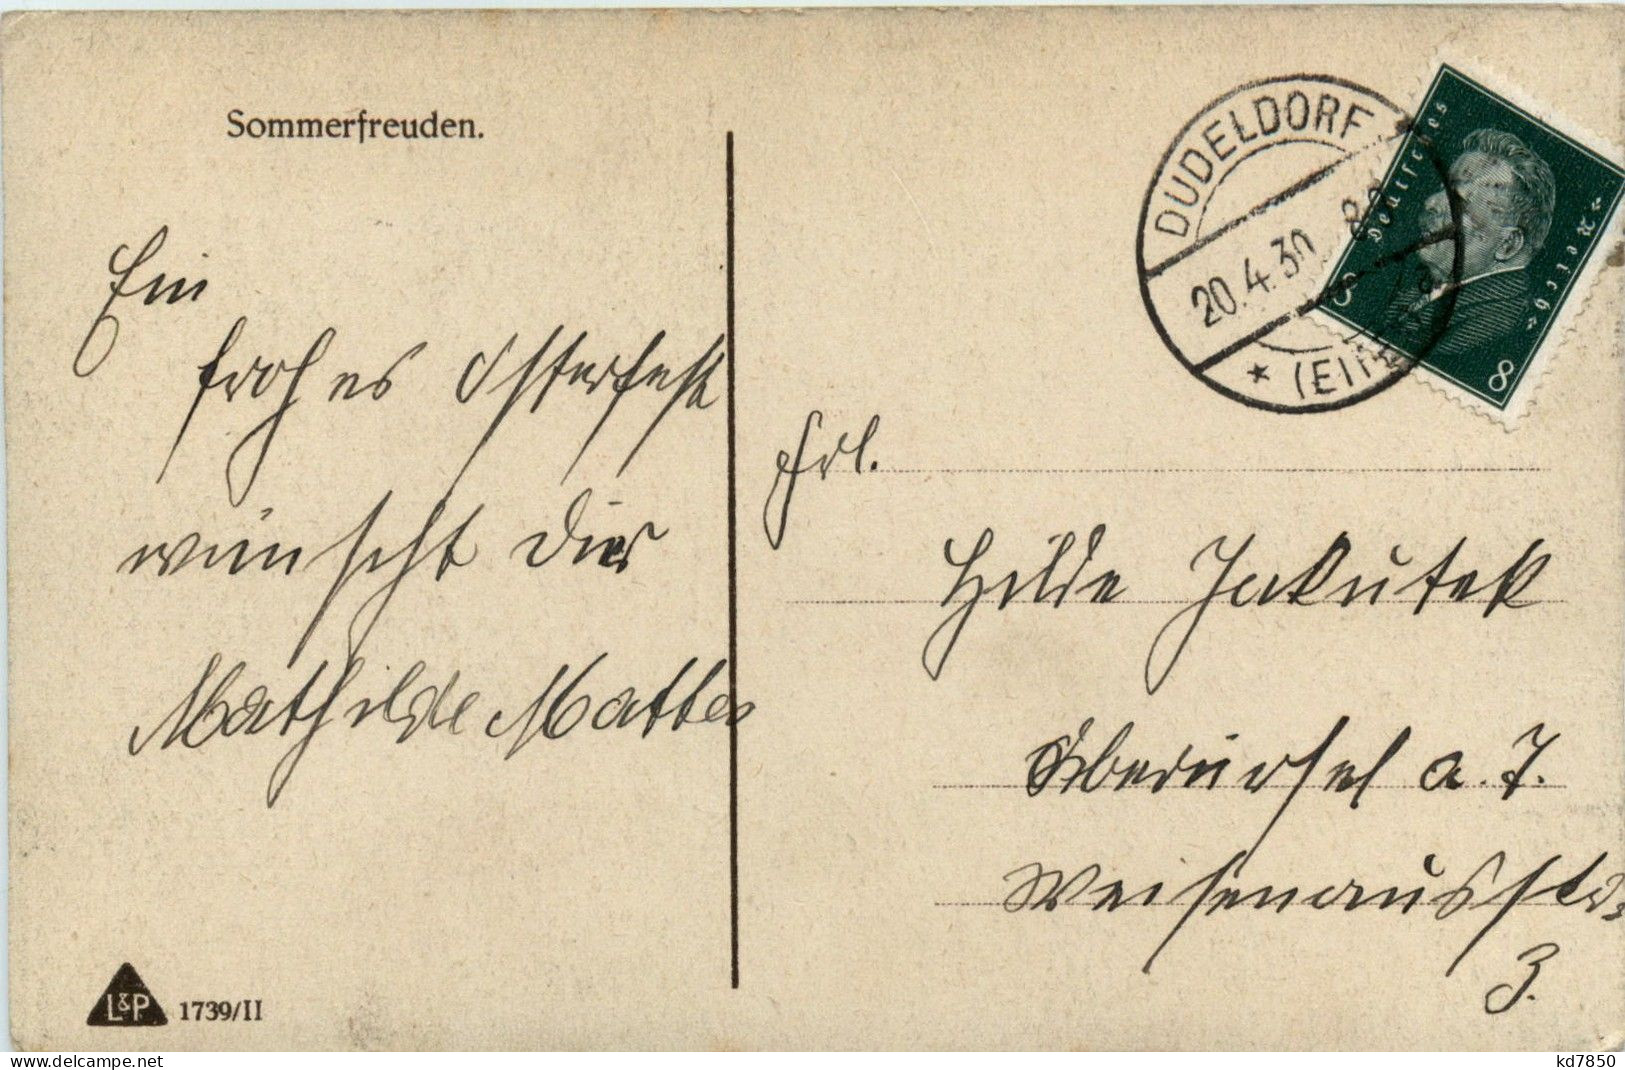 Sommerfreuden.
Ein
frohes Osterfest
wünscht Dir
Mathilde Mattes
L&P 1739/II
DUDELDORF
20.4.30
* (EIF
Deutsches Reich
8 8
Frl.
Hilde Jakutek
Oberursel a. T.
3.
delcampe.net
kd7850